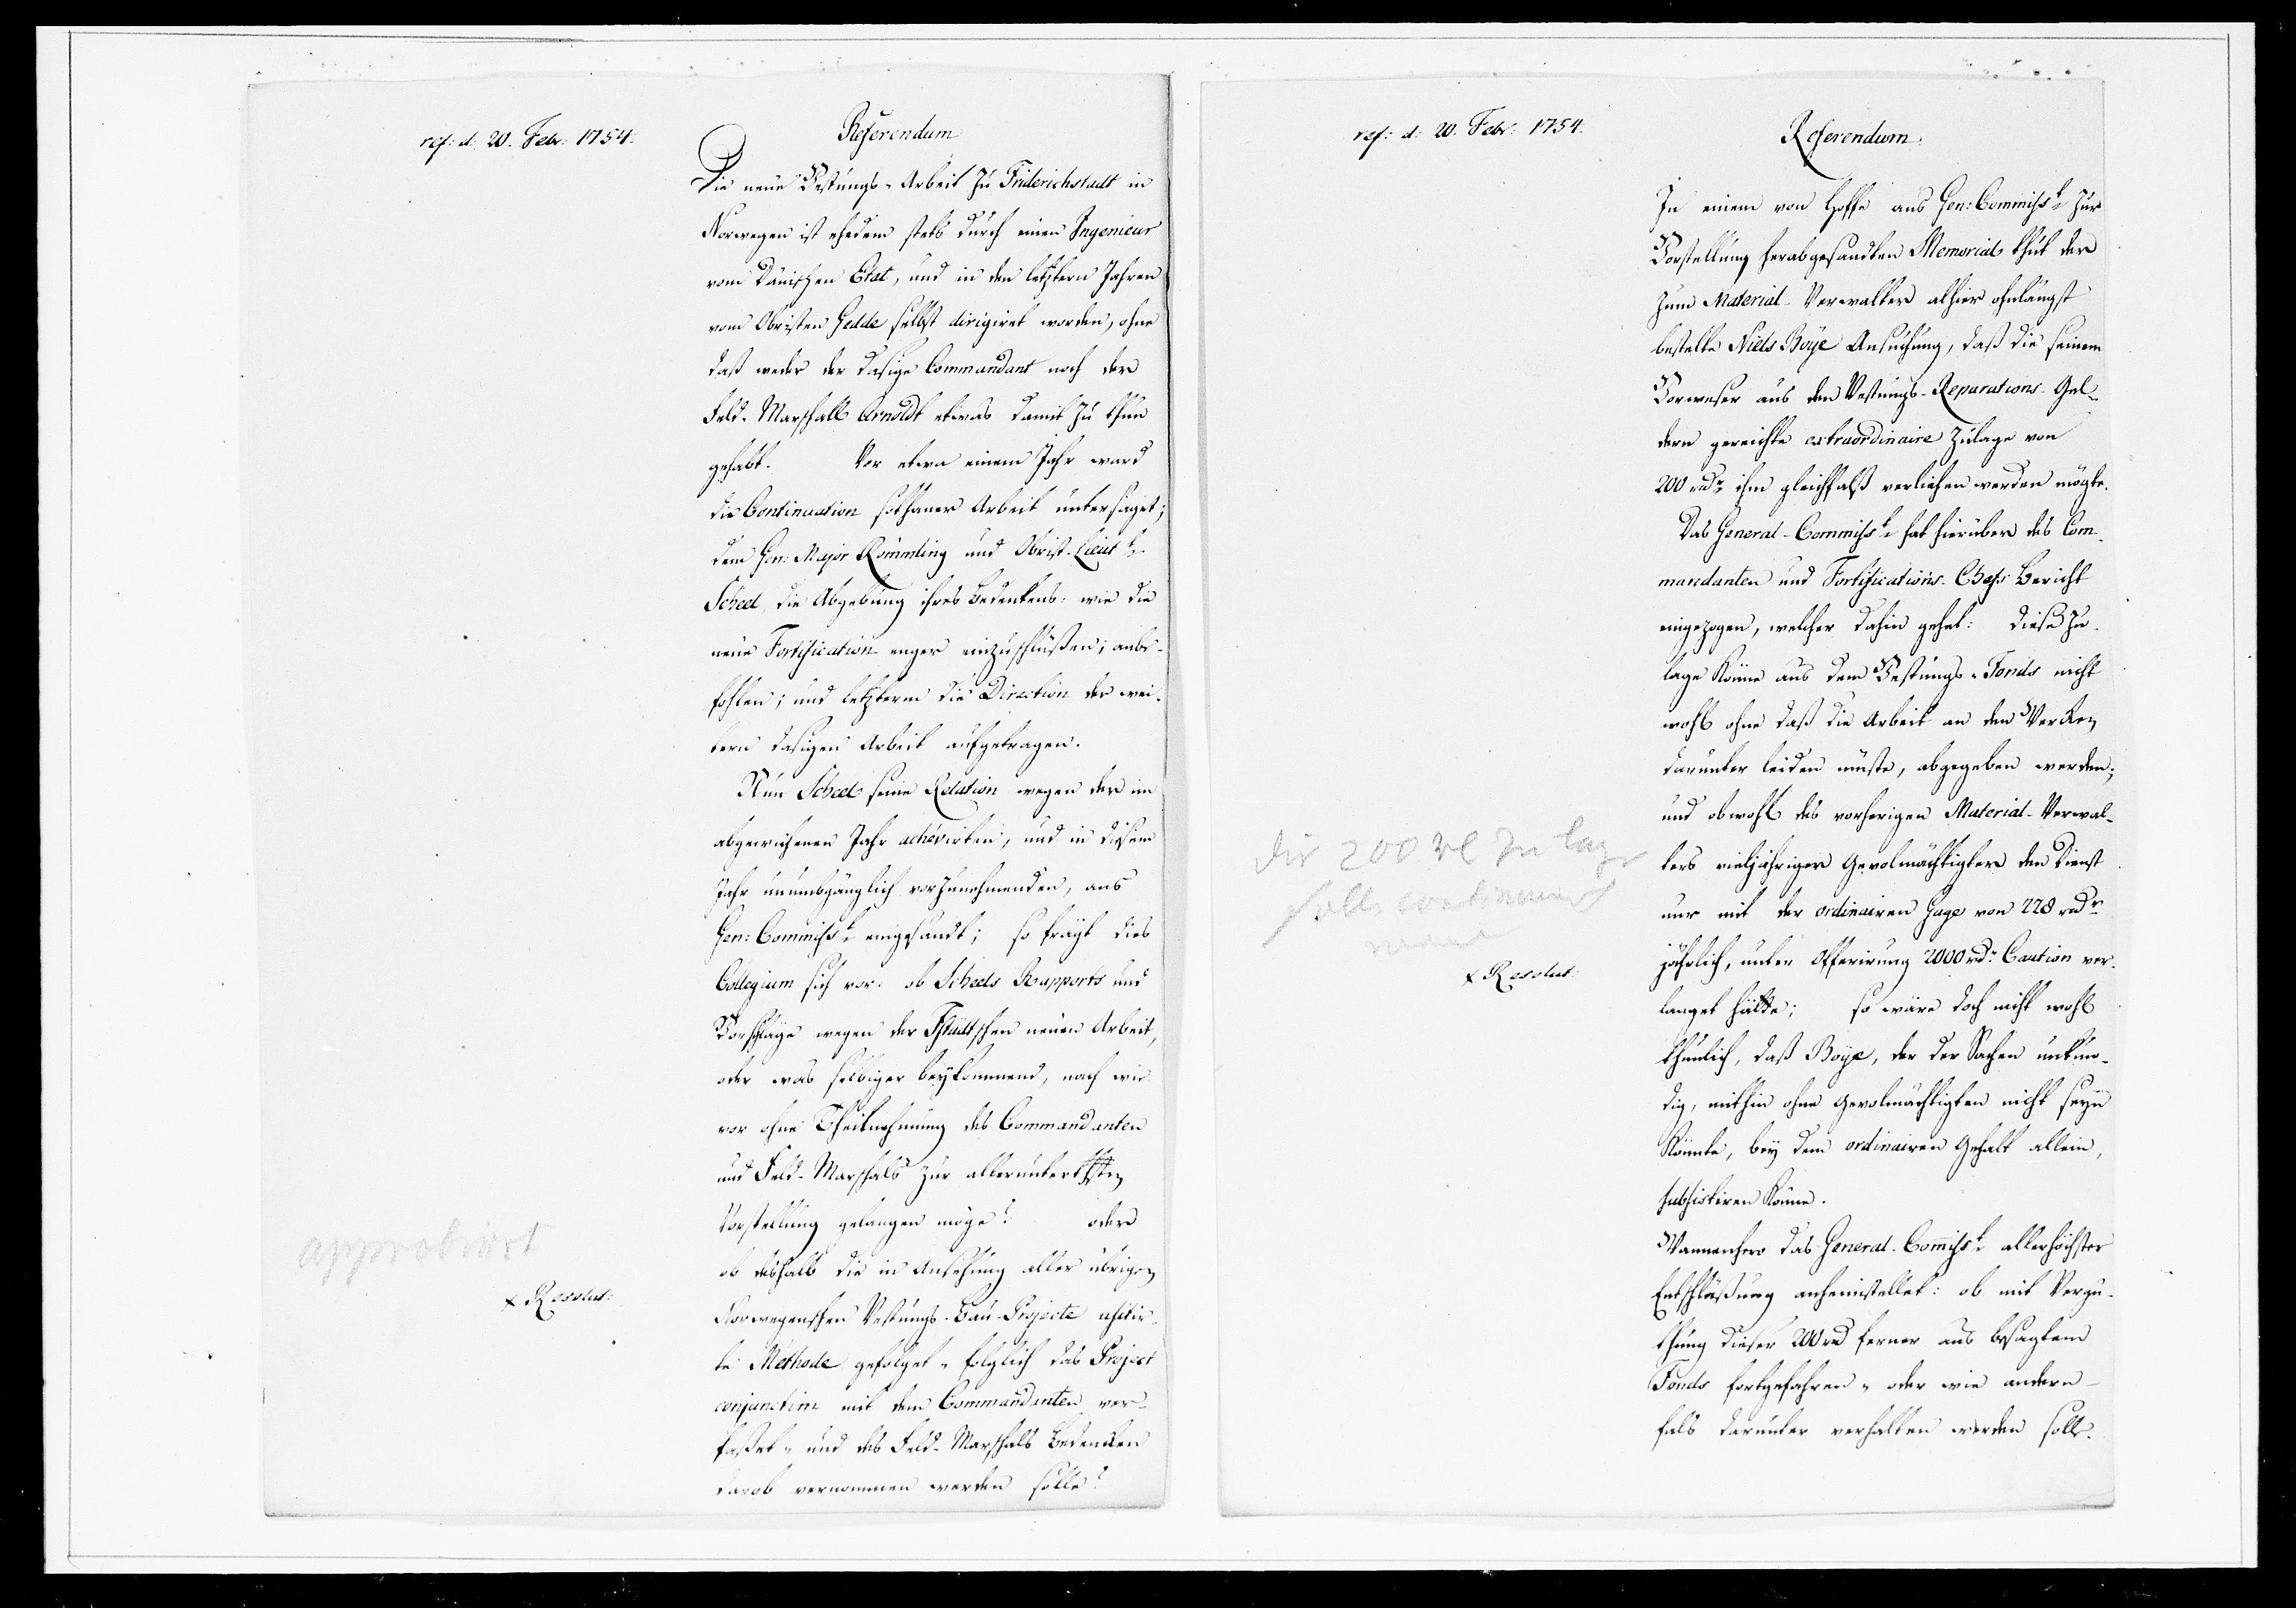 ref: d. 20. Febr: 1754.
Referendum
Die neue Vestungs-Arbeit zu Friderichstadt in
Norwegen ist ehedem stets durch einen Ingenieur
vom Dänischen Etat, und in den letztern Jahren
vom Obristen Gedde selbst dirigiret worden, ohne
daß weder der dasige Commandant noch der
Feld-Marschall Arnoldt etwas damit zu thun
gehabt. Vor etwa einem Jahr ward
die Continuation sothaner Arbeit untersaget;
dem Gen: Major Römmling und Obrist-Lieut
Scheel, die Abgebung ihres Bedenkens: wie die
neue Fortification enger einzuschlüßen; anbe-
fohlen; und letzterm die Direction der wei-
tern dasigen Arbeit aufgetragen.
Nun Scheel seine Relation wegen der im
abgewichenen Jahr achevirten, und in diesem
Jahr unumbgänglich vorzunehmenden, ans
Gen: Commisst. eingesandt; so frägt dies
Collegium sich vor: ob Scheels Rapports und
Vorschläge wegen der Fstädtschen neuen Arbeit,
oder was selbiger beykommend, nach wie
vor ohne Theilnehmung des Commandanten
und Feld-Marschals zur alleruntert
Vorstellung gelangen möge? oder
ob deshalb die in Ansehung aller übrigen
Norwegenschen Vestungs-Bau-Projecte usitir-
te Methode gefolget- folglich das Project
conjunctim mit dem Commandanten ver-
faßet- und des Feld-Marschals Bedencken
darob vernommen werden solle?
approbirt
x Resolut:
ref: d: 20. Febr: 1754.
Referendum.
In einem von Hoffe ans Gen: Commisst. zur
Vorstellung herabgesandten Memorial thut der
zum Material-Verwalter alhier ohnlängst
bestelte Niels Böye Ansuchung, daß die seinem
Vorweser aus den Vestungs-Reparations-Gel-
dern gereichte extraordinaire Zulage von
200 rdr. ihm gleichfalß verliehen werden mögte.
Das General-Commisst. hat hierüber des Com-
mandanten und Fortifications-Chefs Bericht
eingezogen, welcher dahin gehet: diese Zu-
lage könne aus dem Vestungs-Fonds nicht
wohl ohne daß die Arbeit an den Wercken
darunter leiden müste, abgegeben werden;
und obwohl des vorherigen Material-Verwal-
ters vieljähriger Gevolmächtigter den Dienst
nur mit der ordinairen Gage von 228 rdr
jährlich, unter Offerirung 2000 rdr. Caution ver-
langet hätte; so wäre doch nicht wohl
thunlich, daß Böye, der der Sachen unkün-
dig, mithin ohne Gevolmächtigten nicht seyn
könnte, bey dem ordinairen Gehalt allein,
subsistiren könne.
Wannenhero das General-Com̅isst. allerhöchster
Entschlüßung anheimstellet: ob mit Vergü-
thung dieser 200 rd ferner aus besagtem
Fonds fortgefahren- oder wie andern-
fals darunter verhalten werden soll.
die 200 rl zu lage
soll continuirt
x Resolut: